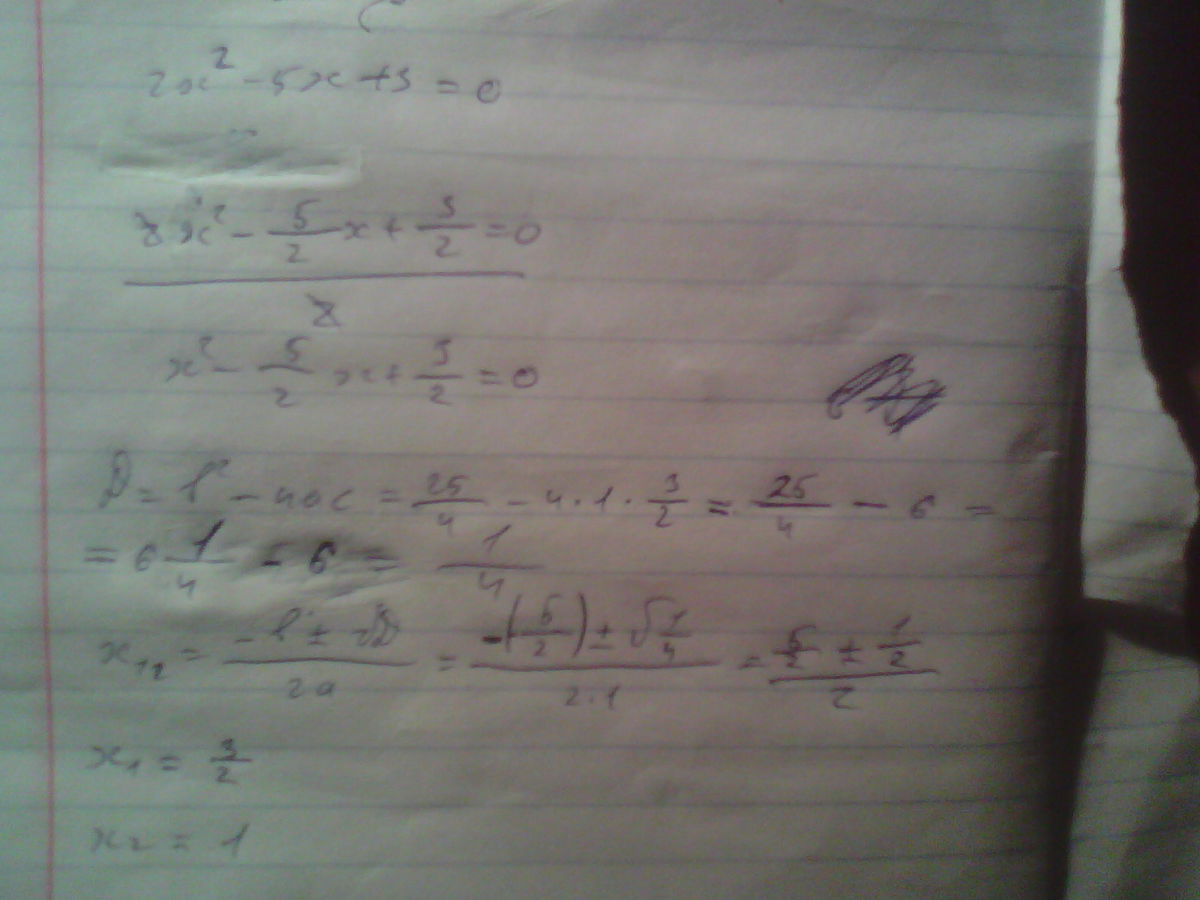 2x² - 5x + 3 = 0
2x² - 5/2 x + 3/2 = 0
2
x² - 5/2 x + 3/2 = 0
D = b² - 4ac = 25/4 - 4·1·3/2 = 25/4 - 6 =
= 6 1/4 - 6 = 1/4
x₁₂ = (-b ± √D)/2a = (-(5/2) ± √1/4)/2·1 = (5/2 ± 1/2)/2
x₁ = 3/2
x₂ = 1